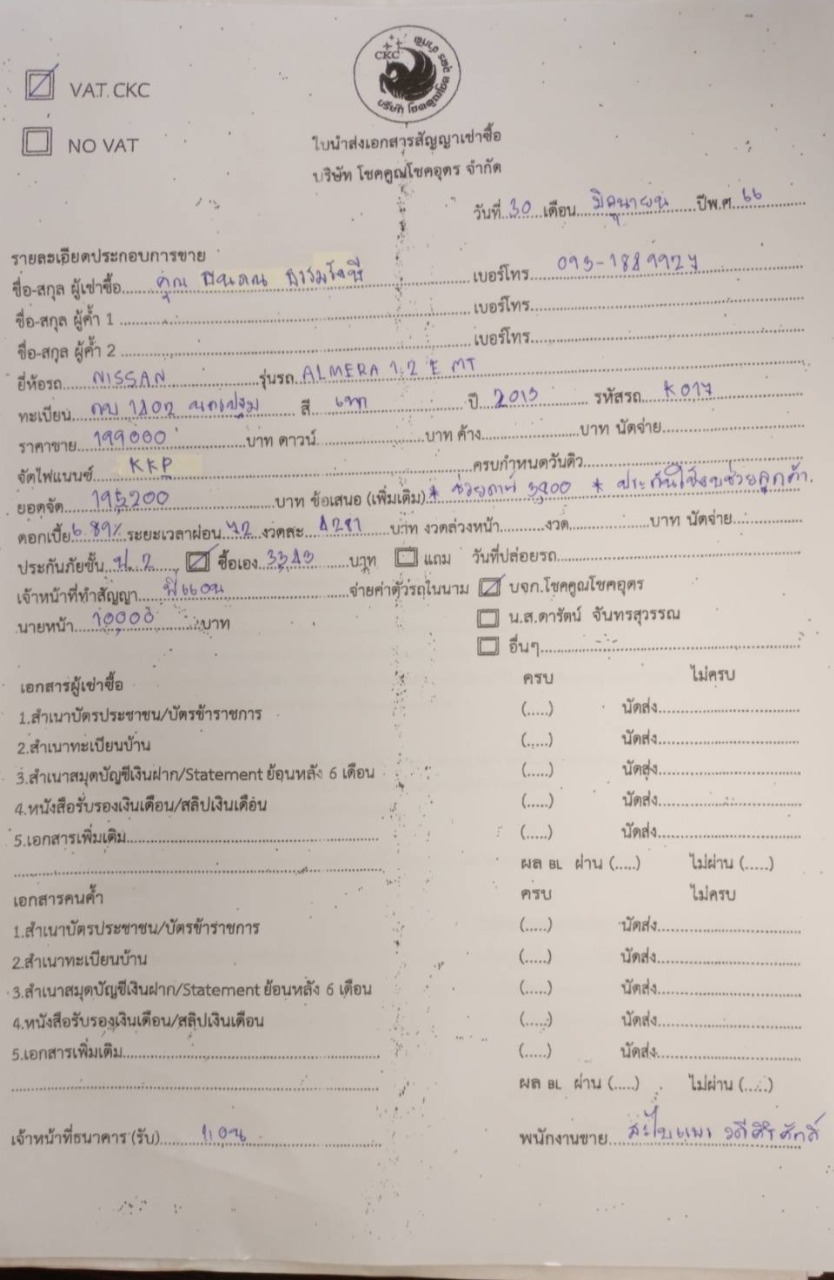 CKC
☑ VAT. CKC
☐ NO VAT
ใบนำส่งเอกสารสัญญาเช่าซื้อ
บริษัท โชคคูณโชคอุดร จำกัด
วันที่ 30 เดือน มิถุนายน ปีพ.ศ. 66
รายละเอียดประกอบการขาย
ชื่อ-สกุล ผู้เช่าซื้อ คุณ เบอร์โทร
ชื่อ-สกุล ผู้ค้ำ 1 เบอร์โทร
ชื่อ-สกุล ผู้ค้ำ 2 เบอร์โทร
ยี่ห้อรถ NISSAN รุ่นรถ ALMERA 1.2 E MT
ทะเบียน นครปฐม สี เทา ปี 2013 รหัสรถ K017
ราคาขาย 199000 บาท ดาวน์ บาท ค้าง บาท นัดจ่าย
จัดไฟแนนซ์ KKP ครบกำหนดวันดิว
ยอดจัด 195200 บาท ข้อเสนอ (เพิ่มเติม) * * ประกันใช้งบช่วยลูกค้า.
ดอกเบี้ย 6.89% ระยะเวลาผ่อน 72 งวดละ 4281 บาท งวดล่วงหน้า งวด บาท นัดจ่าย
ประกันภัยชั้น ป.2 ☑ ซื้อเอง บาท ☐ แถม วันที่ปล่อยรถ
เจ้าหน้าที่ทำสัญญา พี่แอน จ่ายค่าตัวรถในนาม ☑ บจก.โชคคูณโชคอุดร
นายหน้า 10000 บาท ☐ น.ส.ดารัตน์ จันทรสุวรรณ
☐ อื่นๆ
เอกสารผู้เช่าซื้อ ครบ ไม่ครบ
1.สำเนาบัตรประชาชน/บัตรข้าราชการ (.....) นัดส่ง
2.สำเนาทะเบียนบ้าน (.....) นัดส่ง
3.สำเนาสมุดบัญชีเงินฝาก/Statement ย้อนหลัง 6 เดือน (.....) นัดส่ง
4.หนังสือรับรองเงินเดือน/สลิปเงินเดือน (.....) นัดส่ง
5.เอกสารเพิ่มเติม (.....) นัดส่ง
ผล BL ผ่าน (.....) ไม่ผ่าน (.....)
เอกสารคนค้ำ ครบ ไม่ครบ
1.สำเนาบัตรประชาชน/บัตรข้าราชการ (.....) นัดส่ง
2.สำเนาทะเบียนบ้าน (.....) นัดส่ง
3.สำเนาสมุดบัญชีเงินฝาก/Statement ย้อนหลัง 6 เดือน (.....) นัดส่ง
4.หนังสือรับรองเงินเดือน/สลิปเงินเดือน (.....) นัดส่ง
5.เอกสารเพิ่มเติม (.....) นัดส่ง
ผล BL ผ่าน (.....) ไม่ผ่าน (.....)
เจ้าหน้าที่ธนาคาร (รับ) แอน พนักงานขาย